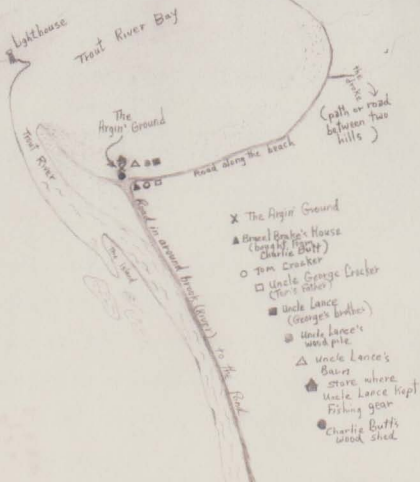 Lighthouse
Trout River Bay
The
Argin' Ground
the
droke
(path or road
between two
hills)
Road along the beach
Trout River
The Island
Road in around brook (River) to the Pond
X The Argin' Ground
▲ Brake's House
(bought from
Charlie Butt)
○ Tom Crocker
□ Uncle George Crocker
(Tom's Father)
■ Uncle Lance
(George's brother)
Uncle Lance's
wood pile
△ Uncle Lance's
Barn
store where
Uncle Lance Kept
Fishing gear
Charlie Butt's
wood shed